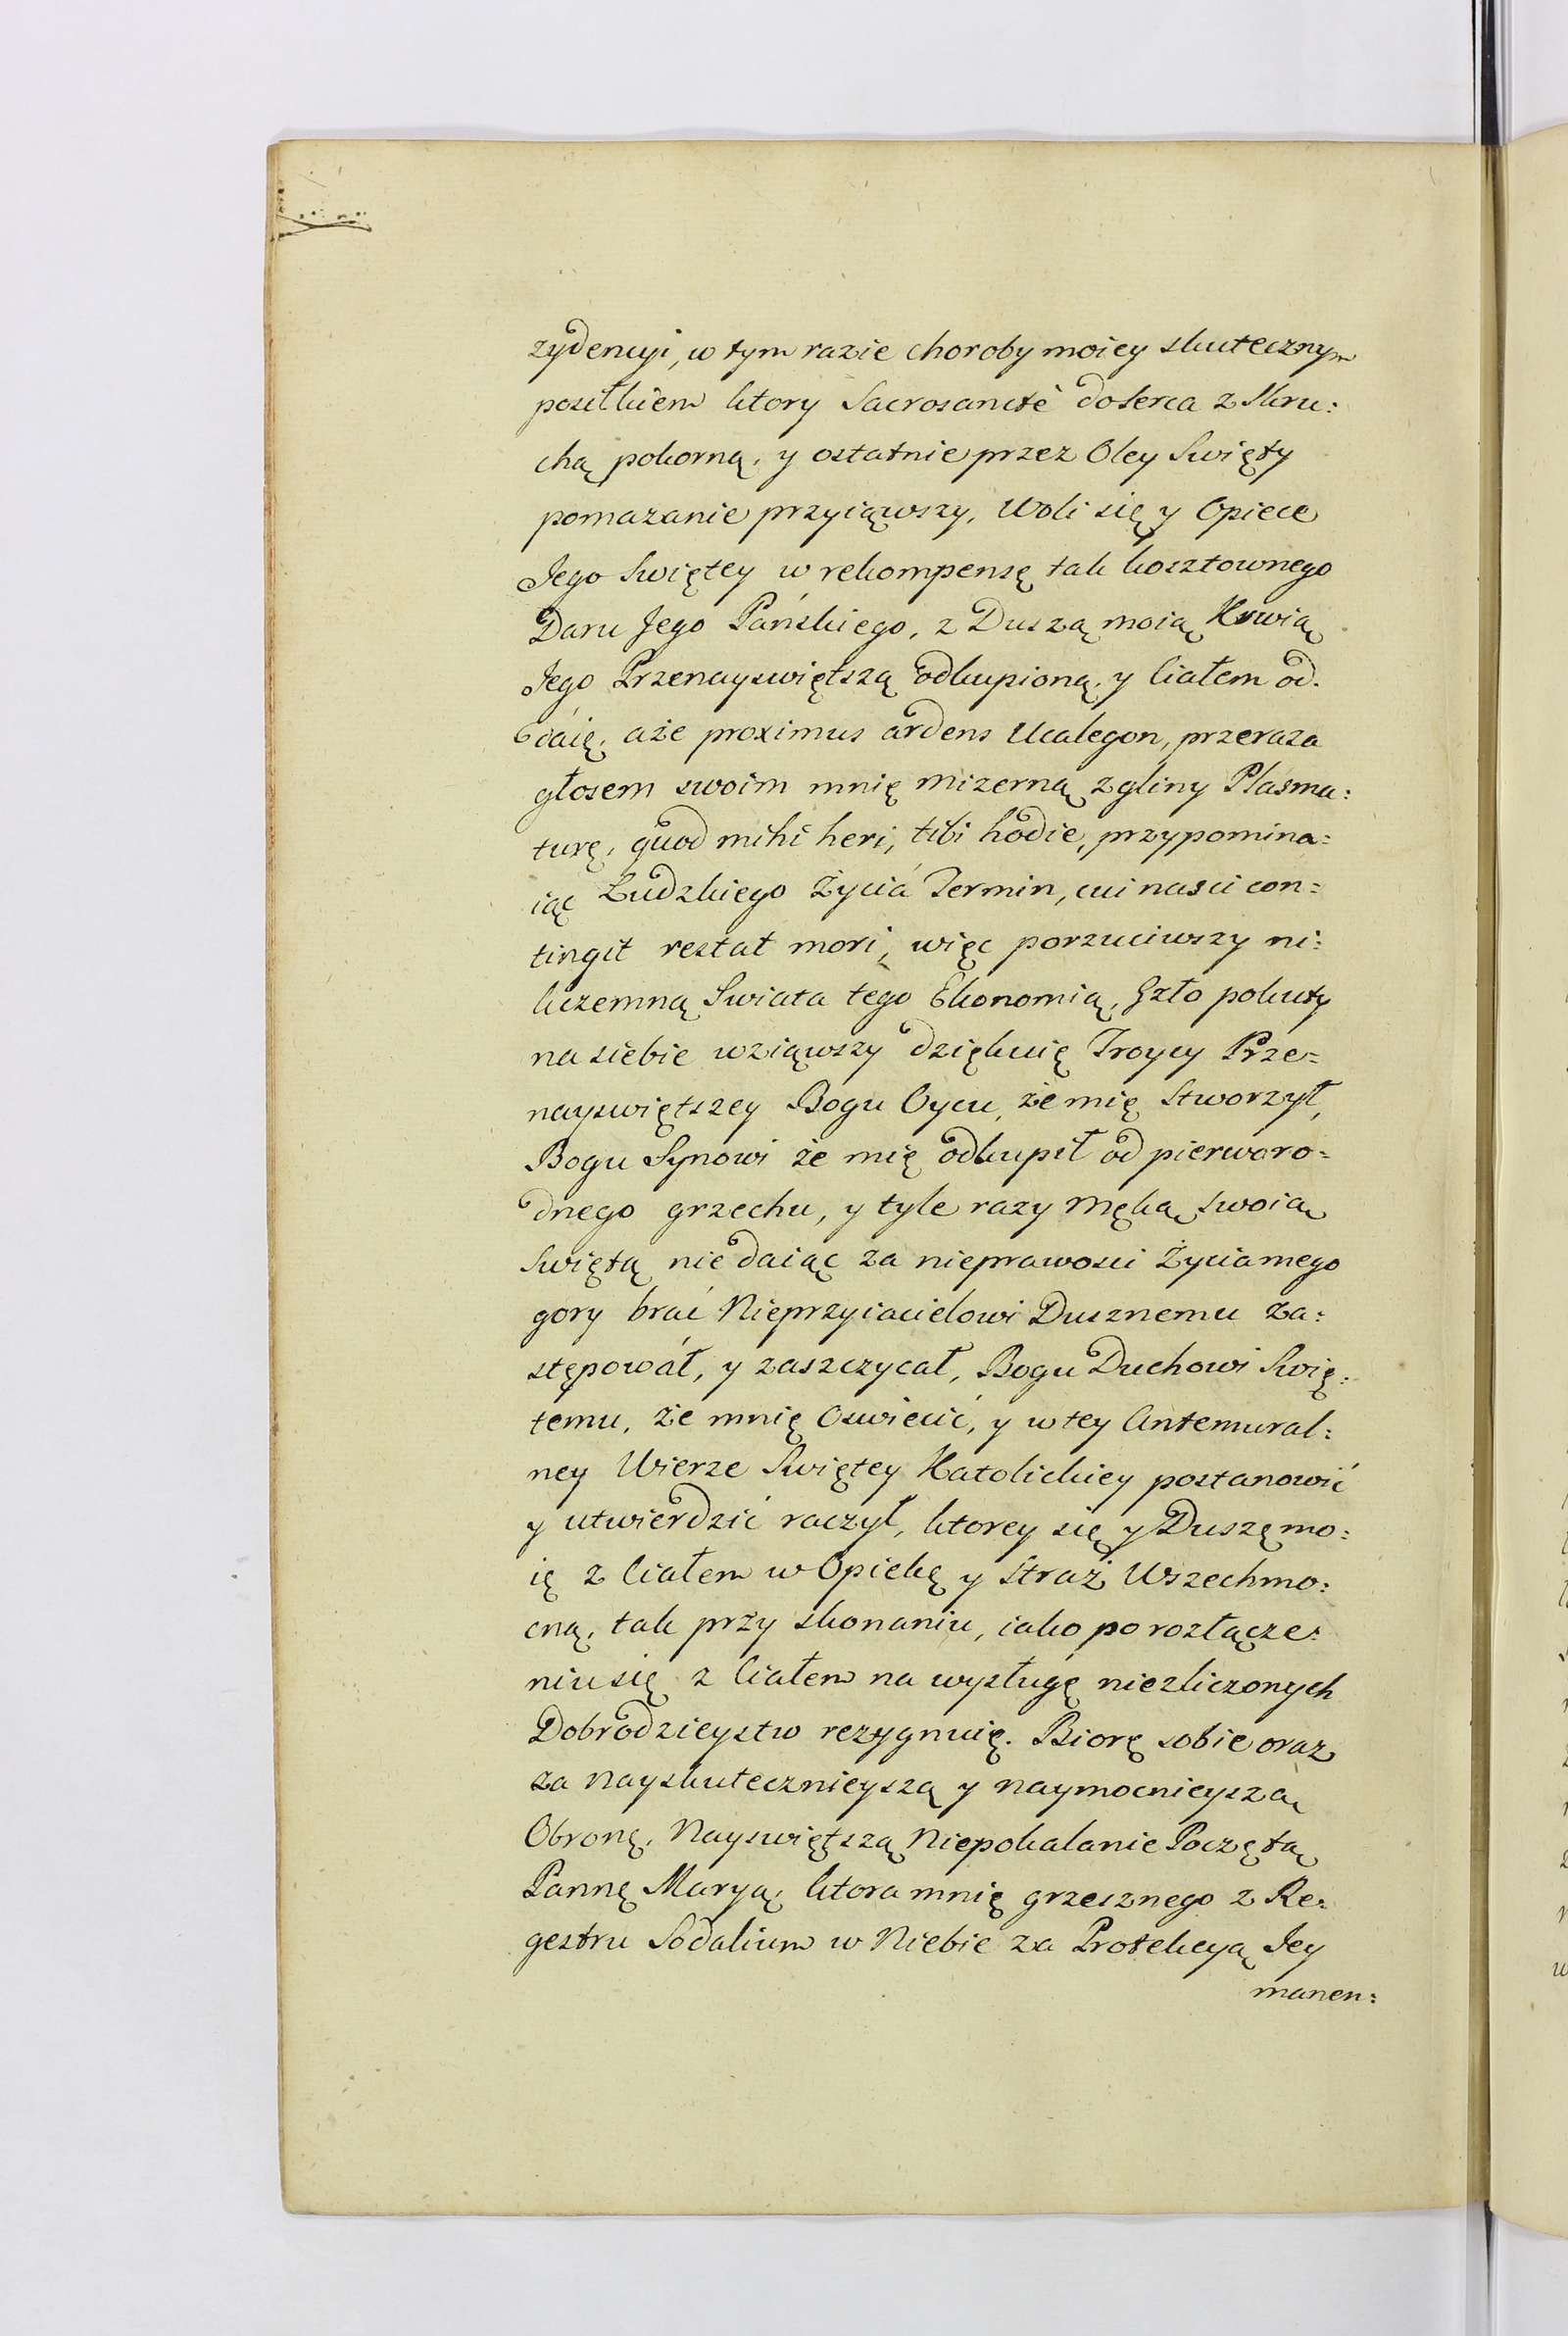 zydencyi, w tym razie choroby moiey skutecznym
posiłkiem ktory Sacrosanctè do serca z Skru:
chą pokorną, y ostatnie przez Oley Swięty
pomazanie przyiąwszy, Woli się y Opiece
Jego Swiętey w rekompensę tak kosztownego
Daru Jego Pańskiego, z Duszą moią Krwią
Jego Przenayswiętszą odkupioną, y Ciałem od.
daię, aże proximus ardens Ucalegon, przeraza
głosem swoim mnię mizerną z gliny Plasma:
turę, quod mihi heri, tibi hodie, przypomina:
iąc Ludzkiego Życiá Termin, cui nasci con:
tingit restat mori, więc porzuciwszy ni:
kczemną Swiata tego Ekonomią, Gzło pokuty
na siebie wziąwszy dziękuię Troycy Prze:
nayswiętszey Bogu Oycu, że mię Stworzył,
Bogu Synowi że mię odkupił od pierworo:
dnego grzechu, y tyle razy Męką swoią
Swiętą nie daiąc za nieprawosci Życia mego
gory brać Nieprzyiacielowi Dusznemu za:
stępowáł, y zaszczycał, Bogu Duchowi Swię:
temu, że mnię Oswiecić, y w tey Antemural:
ney Wierze Swiętey Katolickiey postanowić
y utwierdzić raczył, ktorey się y Duszę mo:
ię z Ciałem w Opiekę y Straż Wszechmo:
cną, tak przy skonaniu, iako po rozłącze:
niu się z Ciałem na wysługę niezliczonych
Dobrodzieystw rezygnuię. Biorę sobie oraz
za nayskutecznieyszą y naymocnieyszą
Obronę, Nayswiętszą Niepokalanie Poczętą
Pannę Maryą, ktora mnię grzesznego z Re:
gestru Sodalium w Niebie za Protekcyą Jey
manen: